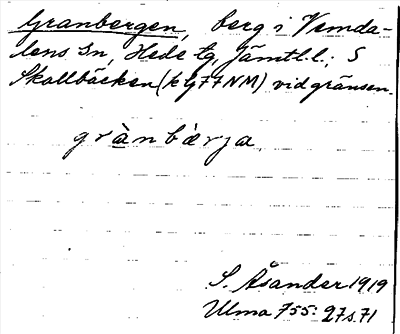 Granbergen, berg i Vemda-
lens sn, Hede tg, Jämtl. l.; S
Skallbäcken (k g 77 NM) vid gränsen.
grànbæ̀rja.
S. Åsander 1919
Ulma 755: 27 s. 71